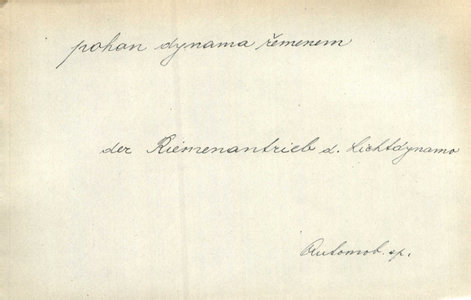 pohan dynama řemenem
der Riemenantrieb d. Lichtdynamo
Automob. sp.